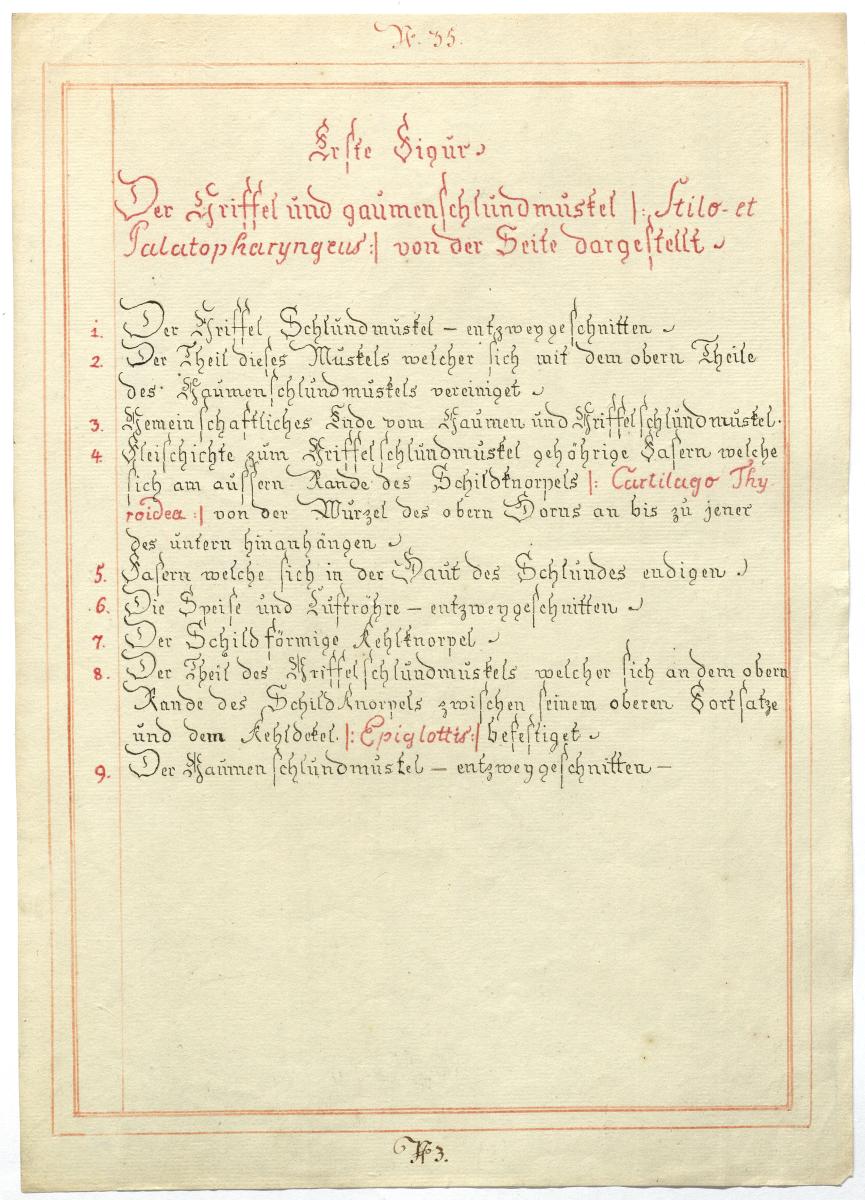 N. 35.
Erste Figur
Der Griffel und gaumenschlundmuskel |: Stilo- et
Palatopharyngeus :| von der Seite dargestellt
1. Der Griffel Schlundmuskel – entzweygeschnitten
2. Der Theil dieses Muskels welcher sich mit dem obern Theile
des Gaumenschlundmuskels vereiniget
3. Gemeinschaftliches Ende vom Gaumen und Griffelschlundmuskel.
4. Fleischichte zum Griffelschlundmuskel gehöhrige Fasern welche
sich am aussern Rande des Schildknorpels |: Cartilago Thy-
roidea :| von der Wurzel des obern Horns an bis zu jener
des untern hinanhängen
5. Fasern welche sich in der Haut des Schlundes endigen
6. Die Speise und Luftröhre – entzweygeschnitten
7. Der Schildförmige Kehlknorpel
8. Der Theil des Griffelschlundmuskels welcher sich an dem obern
Rande des Schildknorpels zwischen seinem oberen Fortsatze
und dem Kehldekel. |: Epiglottis :| befestiget
9. Der Gaumenschlundmuskel – entzweygeschnitten –
N 3.